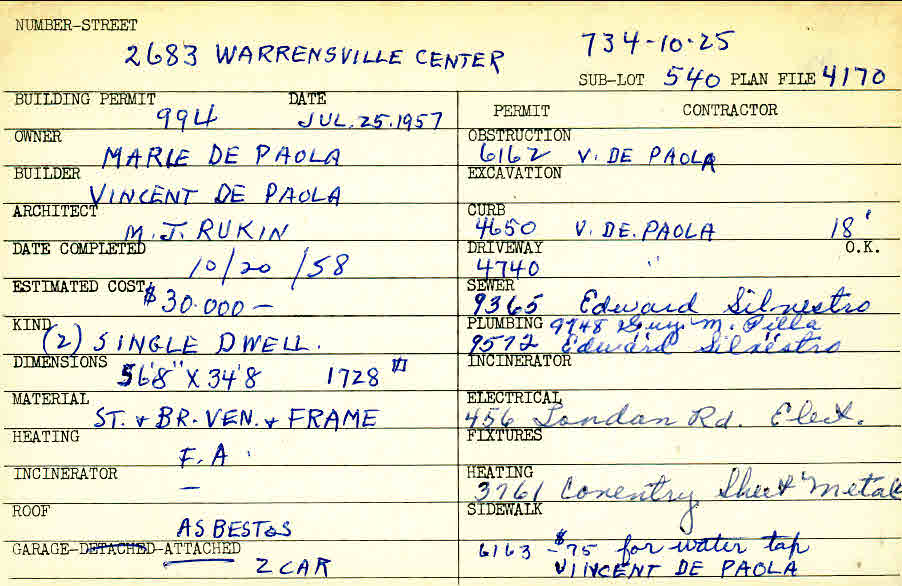 NUMBER-STREET
2683 WARRENSVILLE CENTER
734-10-25
SUB-LOT 540 PLAN FILE 4170
BUILDING PERMIT DATE
994 JUL. 25. 1957
OWNER
MARIE DE PAOLA
BUILDER
VINCENT DE PAOLA
ARCHITECT
M. J. RUKIN
DATE COMPLETED
10/20/58
ESTIMATED COST
$30.000 —
KIND
(2) SINGLE DWELL.
DIMENSIONS
56'8" X 34'8 1728 #
MATERIAL
ST. & BR. VEN. & FRAME
HEATING
F. A.
INCINERATOR
—
ROOF
ASBESTOS
GARAGE-DETACHED-ATTACHED
2 CAR
PERMIT CONTRACTOR
OBSTRUCTION
6162 V. DE PAOLA
EXCAVATION
CURB
4650 V. DE. PAOLA 18'
DRIVEWAY O.K.
4740 "
SEWER
9365 Edward Silvestro
PLUMBING 9748 Guy M. Pilla
9572 Edward Silvestro
INCINERATOR
ELECTRICAL
456 London Rd. Elect.
FIXTURES
HEATING
3761 Conentry Sheet Metal
SIDEWALK
6163 - $75 for water tap
VIINCENT DE PAOLA